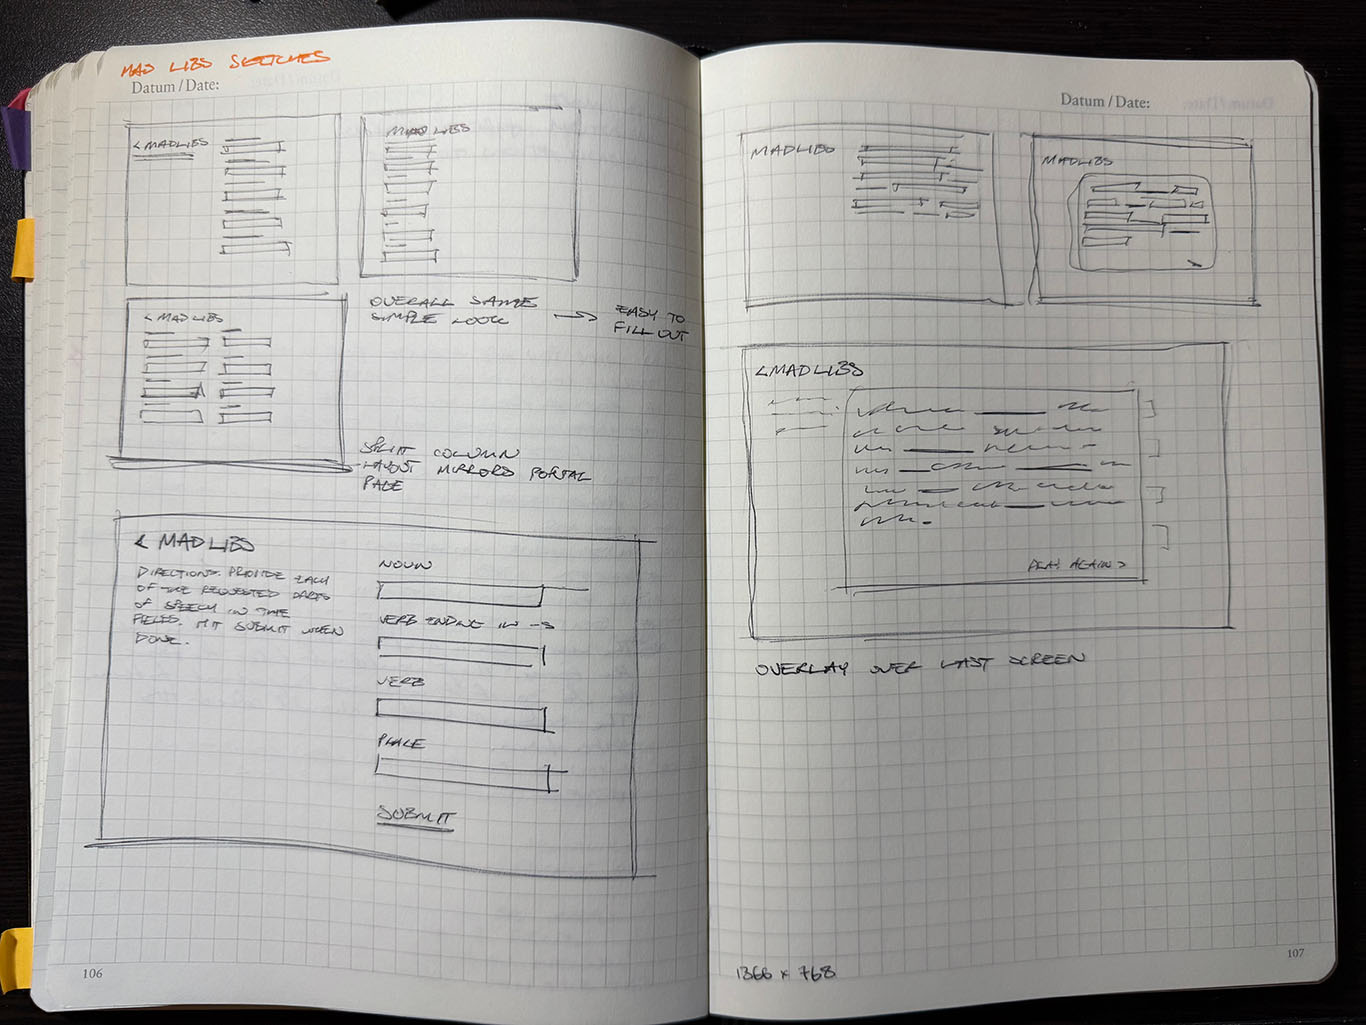 MAD LIBS SKETCHES
Datum / Date:
< MADLIBS
MAD LIBS
< MADLIBS
OVERALL SAME
SIMPLE LOOK → EASY TO
FILL OUT
SPLIT COLUMN
LAYOUT MIRRORS PORTAL
PAGE
< MADLIBS
DIRECTIONS. PROVIDE EACH
OF THE REQUESTED PARTS
OF SPEECH IN THE
FIELDS. HIT SUBMIT WHEN
DONE.
NOUN
VERB ENDING IN -S
VERB
PLACE
SUBMIT
106
Datum / Date:
MADLIBS
MADLIBS
< MADLIBS
PLAY AGAIN >
OVERLAY OVER LAST SCREEN
1366 x 768
107